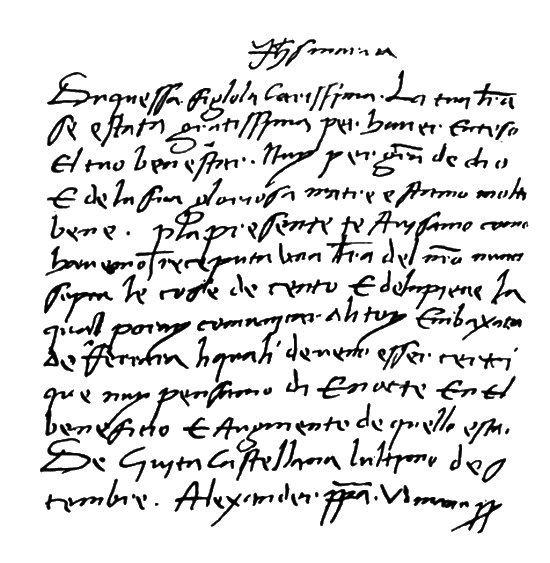 Jhs maria
Duquessa figlola Carissima. La tua l̅r̅a
se e stata gratissima per haver Enteso
El tuo ben estar. Nuy per gr̅a̅ de dio
E de la sua gloriosa matre estamo molto
bene. p la presente te Avisamo como
havemo receputa una l̅r̅a del n̅r̅o
sopra le cose de cento E de la pieve la
qual poray comunicar. Ali toy Embaxatori
de ferrara li quali deveno esser certi
que nuy pensamo di E nocte En El
beneficio E Augmento de quello estu.
De Civita Castellana lultimo de
tembre. Alexander. pp̅a̅. VI manu pp